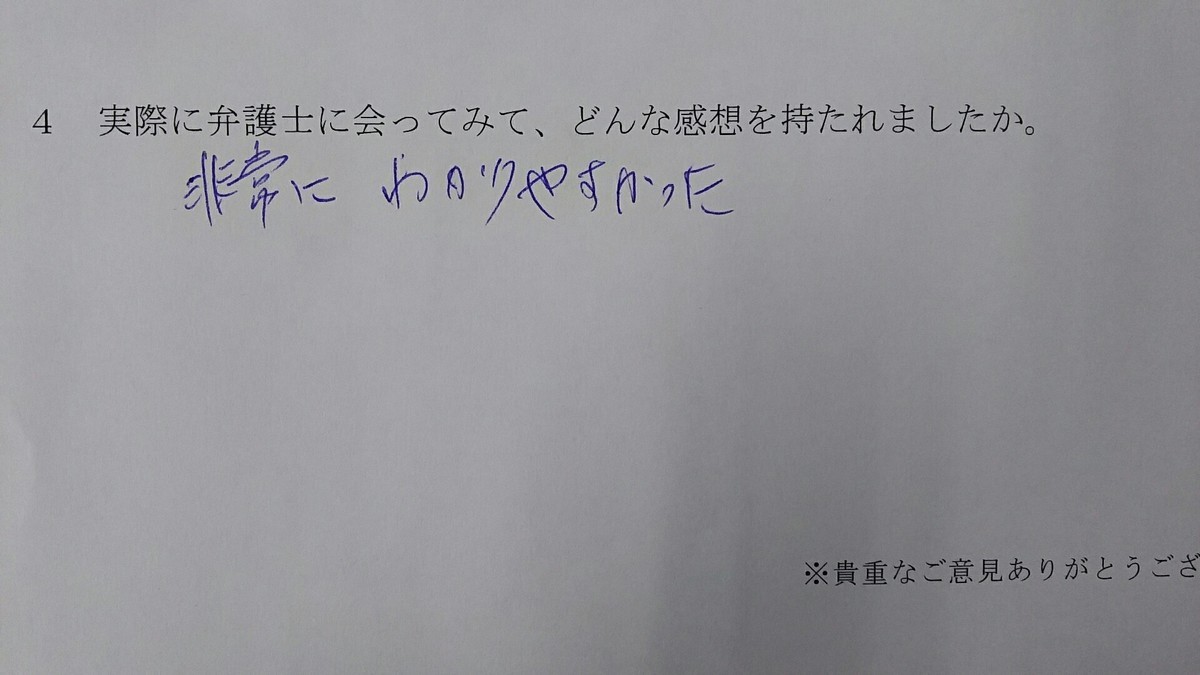 4 実際に弁護士に会ってみて、どんな感想を持たれましたか。
非常に わかりやすかった
※貴重なご意見ありがとうござ